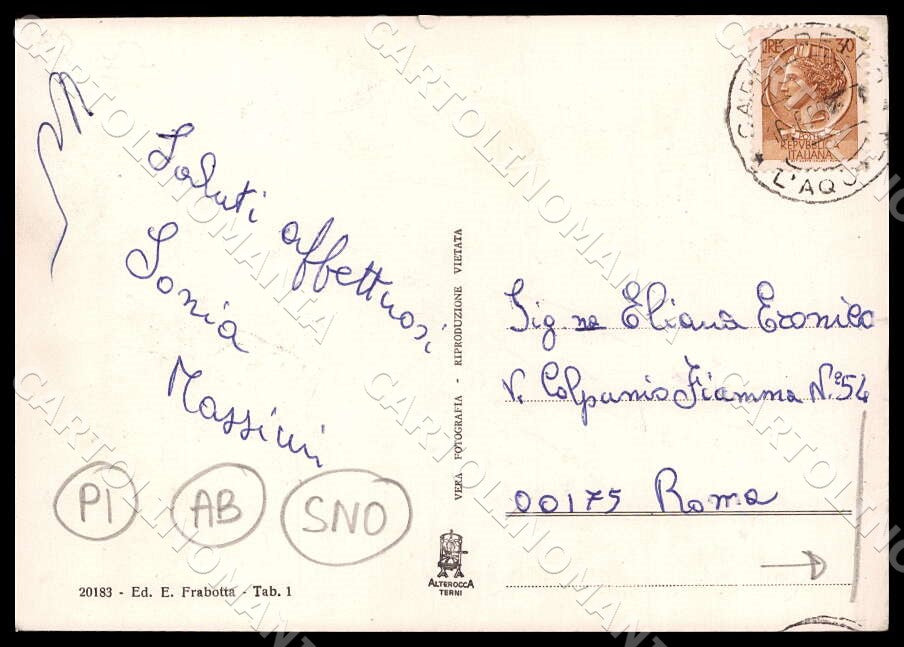 Saluti affettuosi
Sonia
Massimi
PI AB SNO
20183 - Ed. E. Frabotta - Tab. 1
VERA FOTOGRAFIA - RIPRODUZIONE VIETATA
ALTEROCCA
TERNI
LIRE 30
REPUBBLICA
ITALIANA
L'AQU
Sig.na Eliana Eronico
V. Calpurnio Fiamma N.° 54
00175 Roma
CARTOLINOMANIA